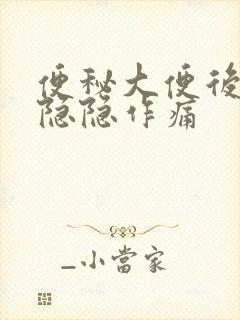 便秘大便後
隐隐作痛
_小當家